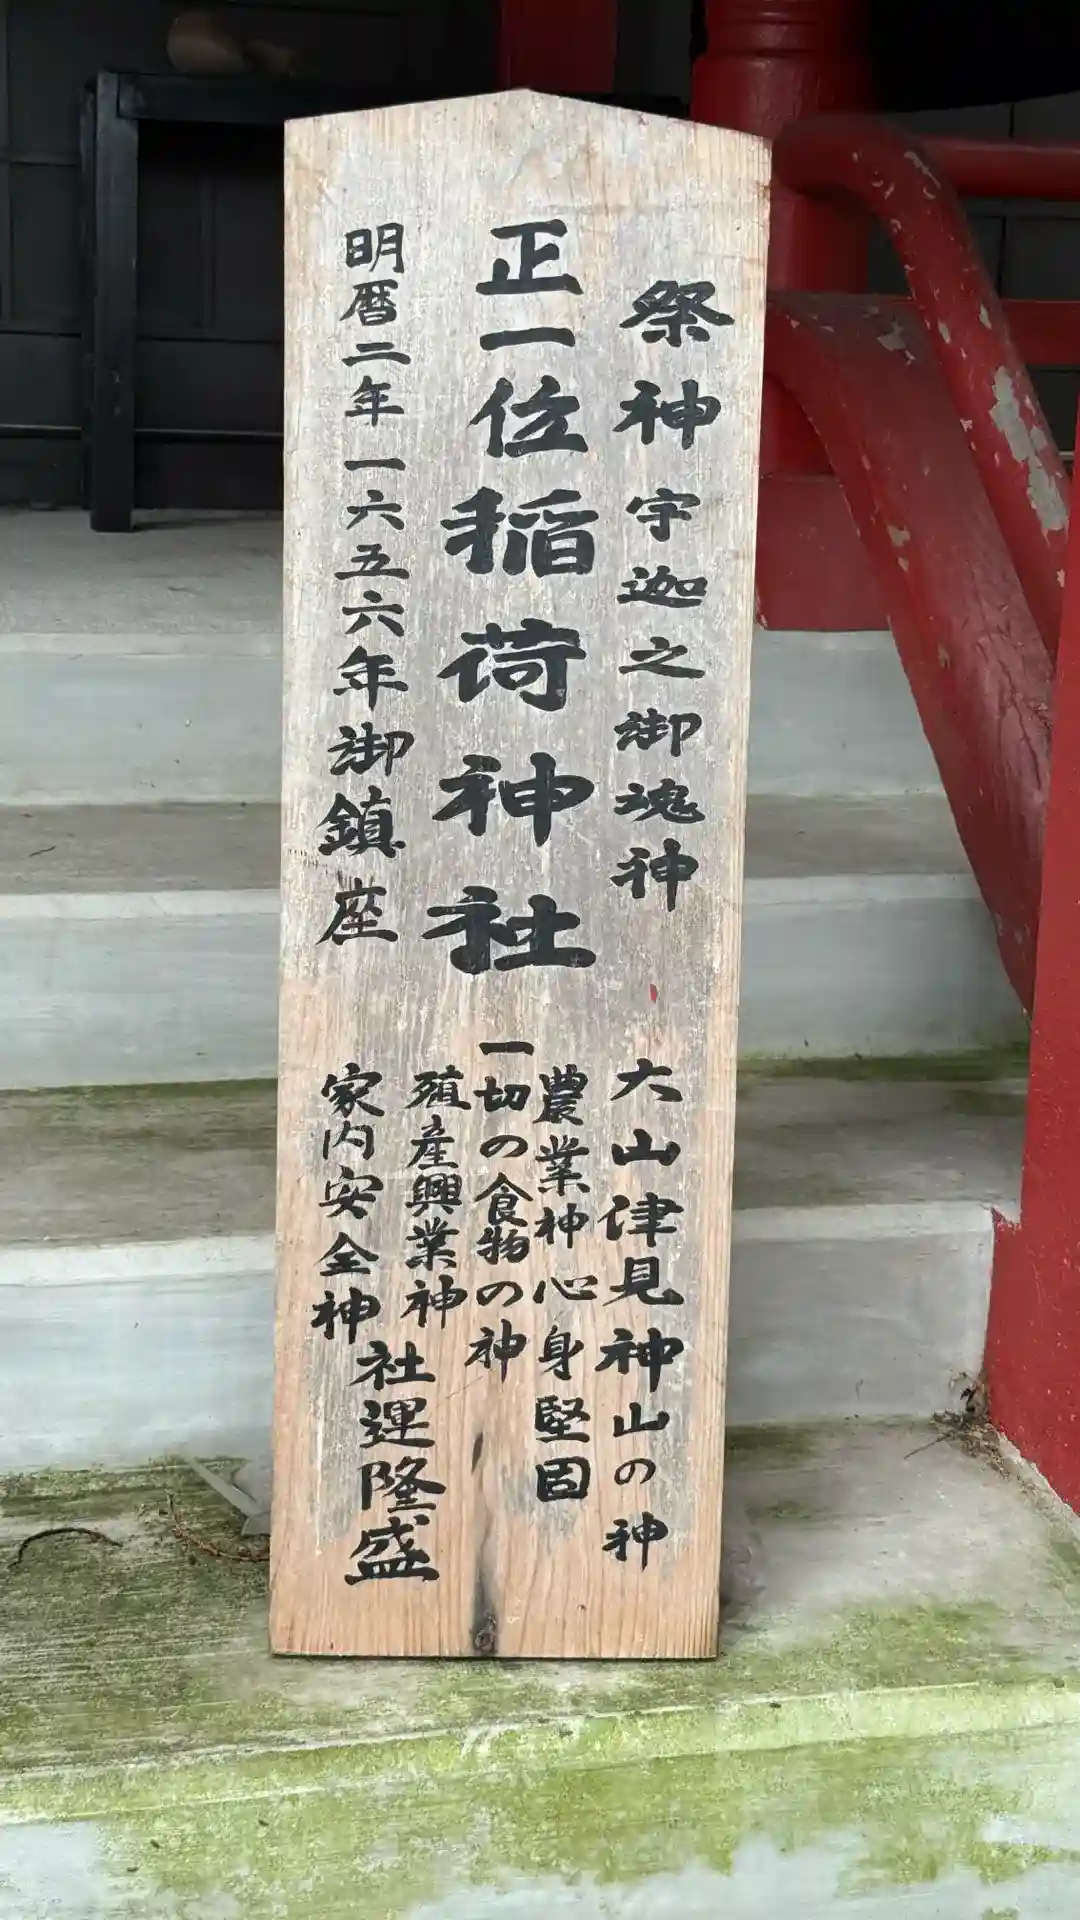 祭神 宇迦之御魂神
正一位稲荷神社
明暦二年一六五六年御鎮座
大山津見神山の神
農業神心身堅固
一切の食物の神
殖産興業神
家内安全神
社運隆盛